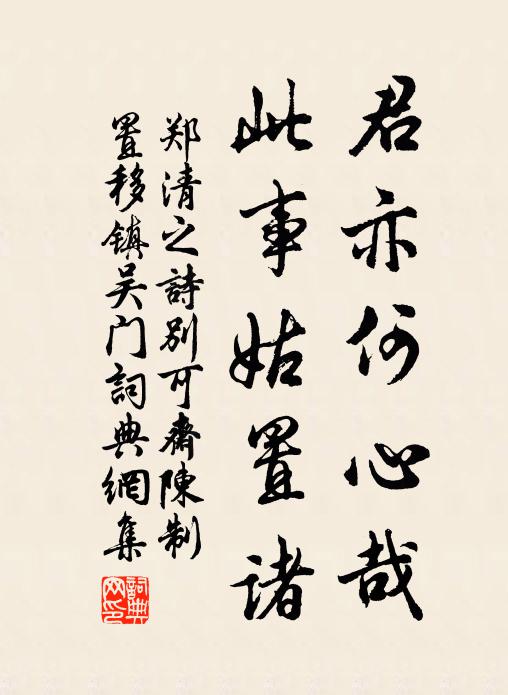 君亦何心哉
此事姑置诸
郑清之詩别可齋陳制
置移镇吴门詞典網集
詞典网印